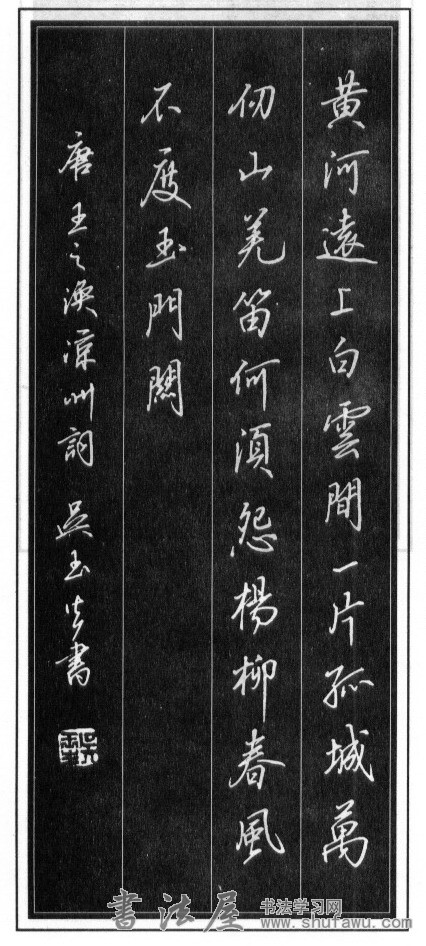 黄河遠上白雲間一片孤城萬
仞山羌笛何須怨楊柳春風
不度玉門關
唐王之渙涼州詞 吴玉生書
書法屋
书法学习网
www.shufawu.com